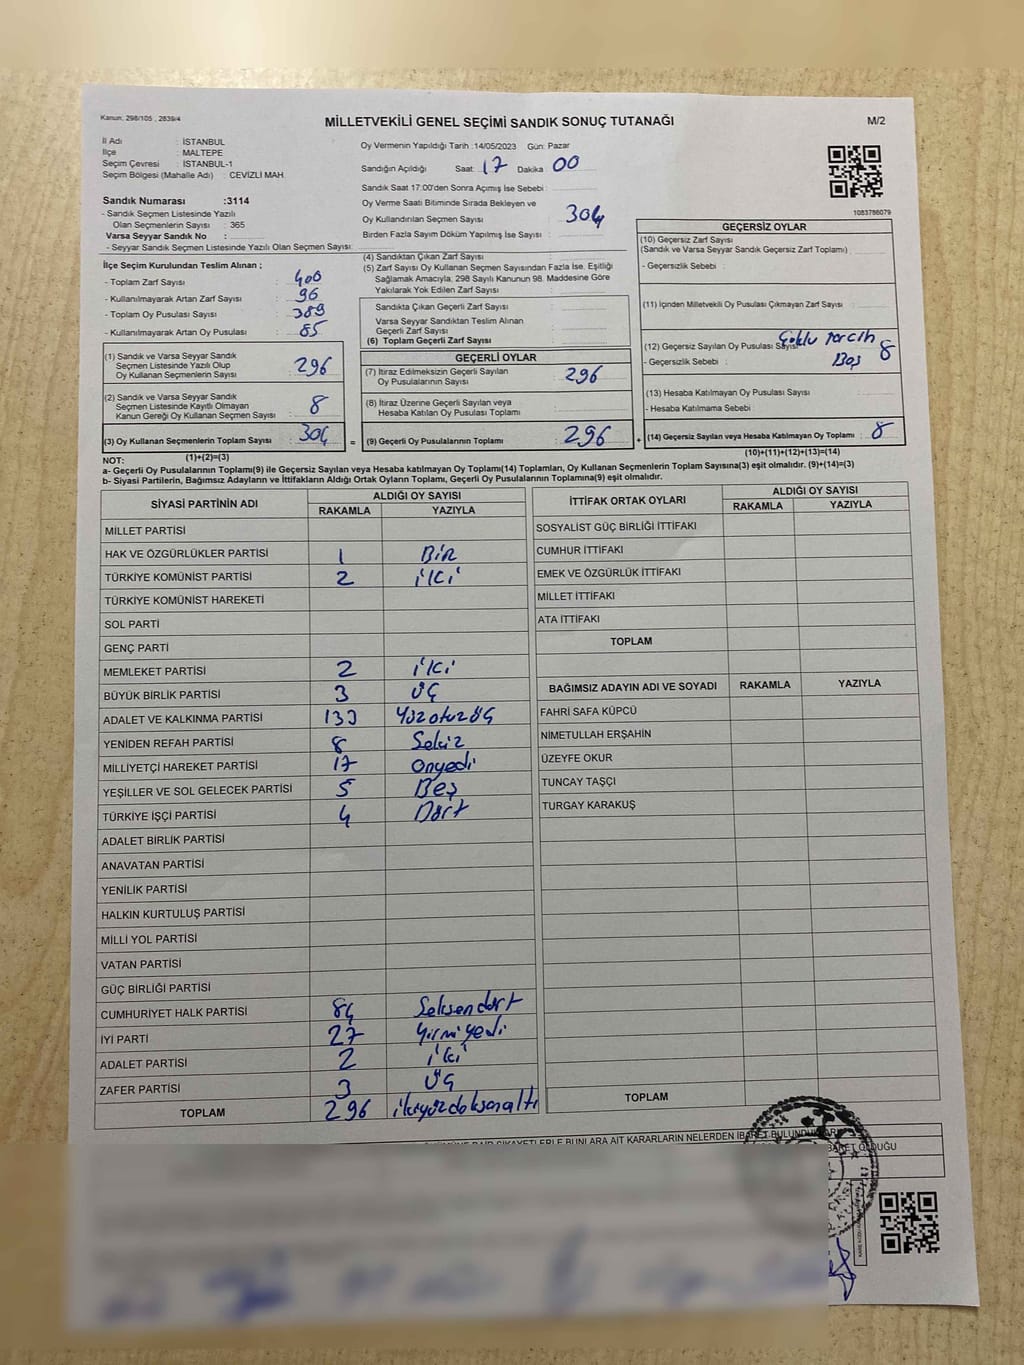 Kanun: 298/105 , 2839/4
MİLLETVEKİLİ GENEL SEÇİMİ SANDIK SONUÇ TUTANAĞI
M/2
İl Adı : İSTANBUL
İlçe : MALTEPE
Seçim Çevresi : İSTANBUL-1
Seçim Bölgesi (Mahalle Adı) : CEVİZLİ MAH.
Sandık Numarası :3114
- Sandık Seçmen Listesinde Yazılı
Olan Seçmen Sayısı : 365
Varsa Seyyar Sandık No :
- Seyyar Sandık Seçmen Listesinde Yazılı Olan Seçmen Sayısı:
Oy Vermenin Yapıldığı Tarih :14/05/2023 Gün: Pazar
Sandığın Açıldığı Saat: 17 Dakika 00
Sandık Saat 17:00'den Sonra Açımış İse Sebebi :
Oy Verme Saati Bitiminde Sırada Bekleyen ve
Oy Kullandırılan Seçmen Sayısı : 304
Birden Fazla Sayım Döküm Yapılmış İse Sayısı :
1083786079
İlçe Seçim Kurulundan Teslim Alınan ;
- Toplam Zarf Sayısı : 400
- Kullanılmayarak Artan Zarf Sayısı : 96
- Toplam Oy Pusulası Sayısı : 389
- Kullanılmayarak Artan Oy Pusulası : 85
(1) Sandık ve Varsa Seyyar Sandık
Seçmen Listesinde Yazılı Olup
Oy Kullanan Seçmenlerin Sayısı : 296
(2) Sandık ve Varsa Seyyar Sandık
Seçmen Listesinde Kayıtlı Olmayan
Kanun Gereği Oy Kullanan Seçmen Sayısı : 8
(3) Oy Kullanan Seçmenlerin Toplam Sayısı : 304 =
(1)+(2)=(3)
(4) Sandıktan Çıkan Zarf Sayısı :
(5) Zarf Sayısı Oy Kullanan Seçmen Sayısından Fazla İse, Eşitliği
Sağlamak Amacıyla, 298 Sayılı Kanunun 98. Maddesine Göre
Yakılarak Yok Edilen Zarf Sayısı :
Sandıkta Çıkan Geçerli Zarf Sayısı :
Varsa Seyyar Sandıktan Teslim Alınan
Geçerli Zarf Sayısı :
(6) Toplam Geçerli Zarf Sayısı :
GEÇERLİ OYLAR
(7) İtiraz Edilmeksizin Geçerli Sayılan
Oy Pusulalarının Sayısı : 296
(8) İtiraz Üzerine Geçerli Sayılan veya
Hesaba Katılan Oy Pusulası Toplamı :
(9) Geçerli Oy Pusulalarının Toplamı : 296 +
GEÇERSİZ OYLAR
(10) Geçersiz Zarf Sayısı
(Sandık ve Varsa Seyyar Sandık Geçersiz Zarf Toplamı) :
- Geçersizlik Sebebi :
(11) İçinden Milletvekili Oy Pusulası Çıkmayan Zarf Sayısı :
(12) Geçersiz Sayılan Oy Pusulası Sayısı : Çoklu tercih 8
- Geçersizlik Sebebi : Boş
(13) Hesaba Katılmayan Oy Pusulası Sayısı :
- Hesaba Katılmama Sebebi :
(14) Geçersiz Sayılan veya Hesaba Katılmayan Oy Toplamı : 8
(10)+(11)+(12)+(13)=(14)
NOT:
a- Geçerli Oy Pusulalarının Toplamı(9) ile Geçersiz Sayılan veya Hesaba katılmayan Oy Toplamı(14) Toplamları, Oy Kullanan Seçmenlerin Toplam Sayısına(3) eşit olmalıdır. (9)+(14)=(3)
b- Siyasi Partilerin, Bağımsız Adayların ve İttifakların Aldığı Ortak Oyların Toplamı, Geçerli Oy Pusulalarının Toplamına(9) eşit olmalıdır.
SİYASİ PARTİNİN ADI ALDIĞI OY SAYISI
RAKAMLA YAZIYLA
MİLLET PARTİSİ
HAK VE ÖZGÜRLÜKLER PARTİSİ 1 Bir
TÜRKİYE KOMÜNİST PARTİSİ 2 iki
TÜRKİYE KOMÜNİST HAREKETİ
SOL PARTİ
GENÇ PARTİ
MEMLEKET PARTİSİ 2 iki
BÜYÜK BİRLİK PARTİSİ 3 üç
ADALET VE KALKINMA PARTİSİ 133 Yüzotuzüç
YENİDEN REFAH PARTİSİ 8 Sekiz
MİLLİYETÇİ HAREKET PARTİSİ 17 onyedi
YEŞİLLER VE SOL GELECEK PARTİSİ 5 Beş
TÜRKİYE İŞÇİ PARTİSİ 4 Dört
ADALET BİRLİK PARTİSİ
ANAVATAN PARTİSİ
YENİLİK PARTİSİ
HALKIN KURTULUŞ PARTİSİ
MİLLİ YOL PARTİSİ
VATAN PARTİSİ
GÜÇ BİRLİĞİ PARTİSİ
CUMHURİYET HALK PARTİSİ 84 Seksendört
İYİ PARTİ 27 Yirmiyedi
ADALET PARTİSİ 2 iki
ZAFER PARTİSİ 3 üç
TOPLAM 296 ikiyüzdoksanaltı
İTTİFAK ORTAK OYLARI ALDIĞI OY SAYISI
RAKAMLA YAZIYLA
SOSYALİST GÜÇ BİRLİĞİ İTTİFAKI
CUMHUR İTTİFAKI
EMEK VE ÖZGÜRLÜK İTTİFAKI
MİLLET İTTİFAKI
ATA İTTİFAKI
TOPLAM
BAĞIMSIZ ADAYIN ADI VE SOYADI RAKAMLA YAZIYLA
FAHRİ SAFA KÜPCÜ
NİMETULLAH ERŞAHİN
ÜZEYFE OKUR
TUNCAY TAŞÇI
TURGAY KARAKUŞ
TOPLAM